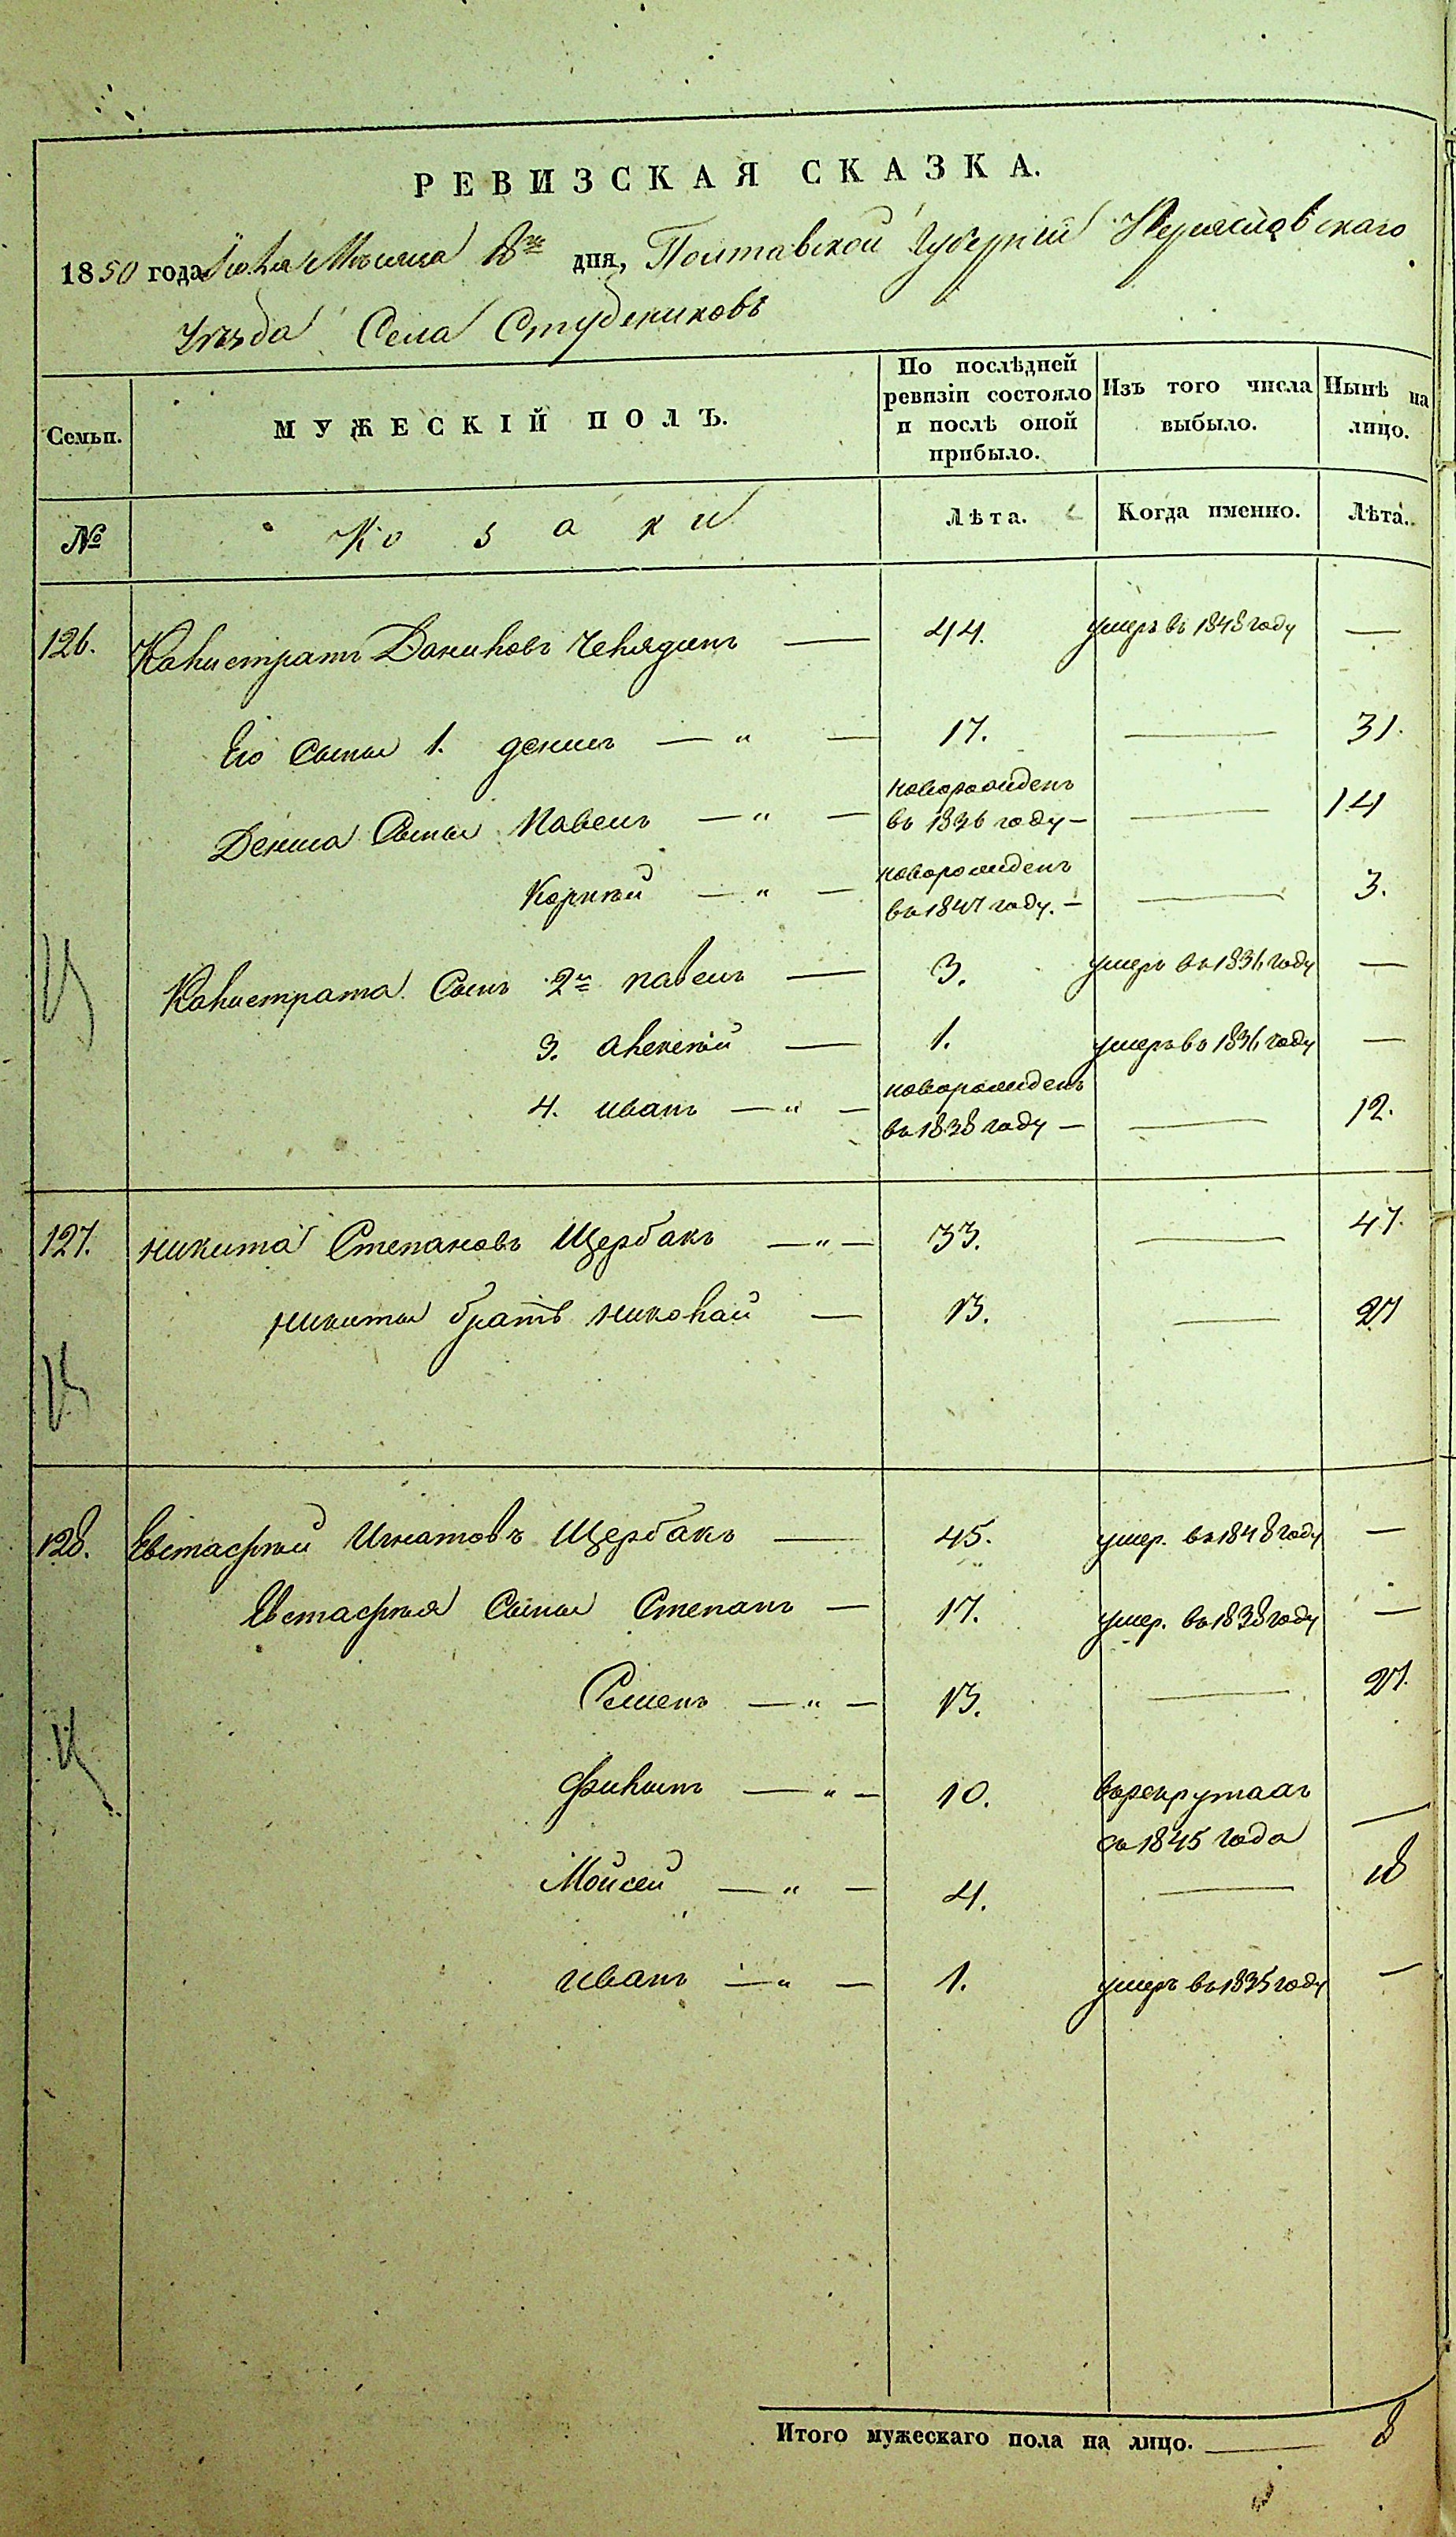 РЕВИЗСКАЯ СКАЗКА.
1850 года Іюля Мѣсяца 18го дня, Полтавской Губерніи Переяславскаго
Уѣзда Села Студениковъ
Семьи.
МУЖЕСКІЙ ПОЛЪ.
По послѣдней ревизіи состояло и послѣ оной прибыло.
Изъ того числа выбыло.
Нынѣ на лицо.
№ Козаки Лѣта. Когда именно. Лѣта.
126. Калистратъ Даниловъ — 44. умеръ въ 1848 году —
Его сыны 1. денисъ — " — 17. — 31.
новорожденъ
Дениса Сыны Павелъ — " — въ 1836 году — — 14
новорожденъ
Корнѣй — " — въ 1847 году. — — 3.
Калистрата Сынъ 2й павелъ — 3. умеръ въ 1836 году —
3. Алексѣй — 1. умеръ въ 1836 году —
новорожденъ
4. иванъ — " — въ 1838 году — — 12.
127. никита Степановъ Щербакъ — " — 33. — 47.
никиты братъ николай — 13. — 27
128. Евстафѣй Игнатовъ Щербакъ — 45. умер. въ 1848 году —
Евстафѣя Сыны Степанъ — 17. умер. въ 1838 году —
Семенъ — " — 13. — 27.
Филипъ — " — 10. въ рекрутахъ
съ 1845 года —
Мойсей — " — 4. — 18
иванъ — " — 1. умеръ въ 1835 году —
Итого мужескаго пола на лицо. — 8